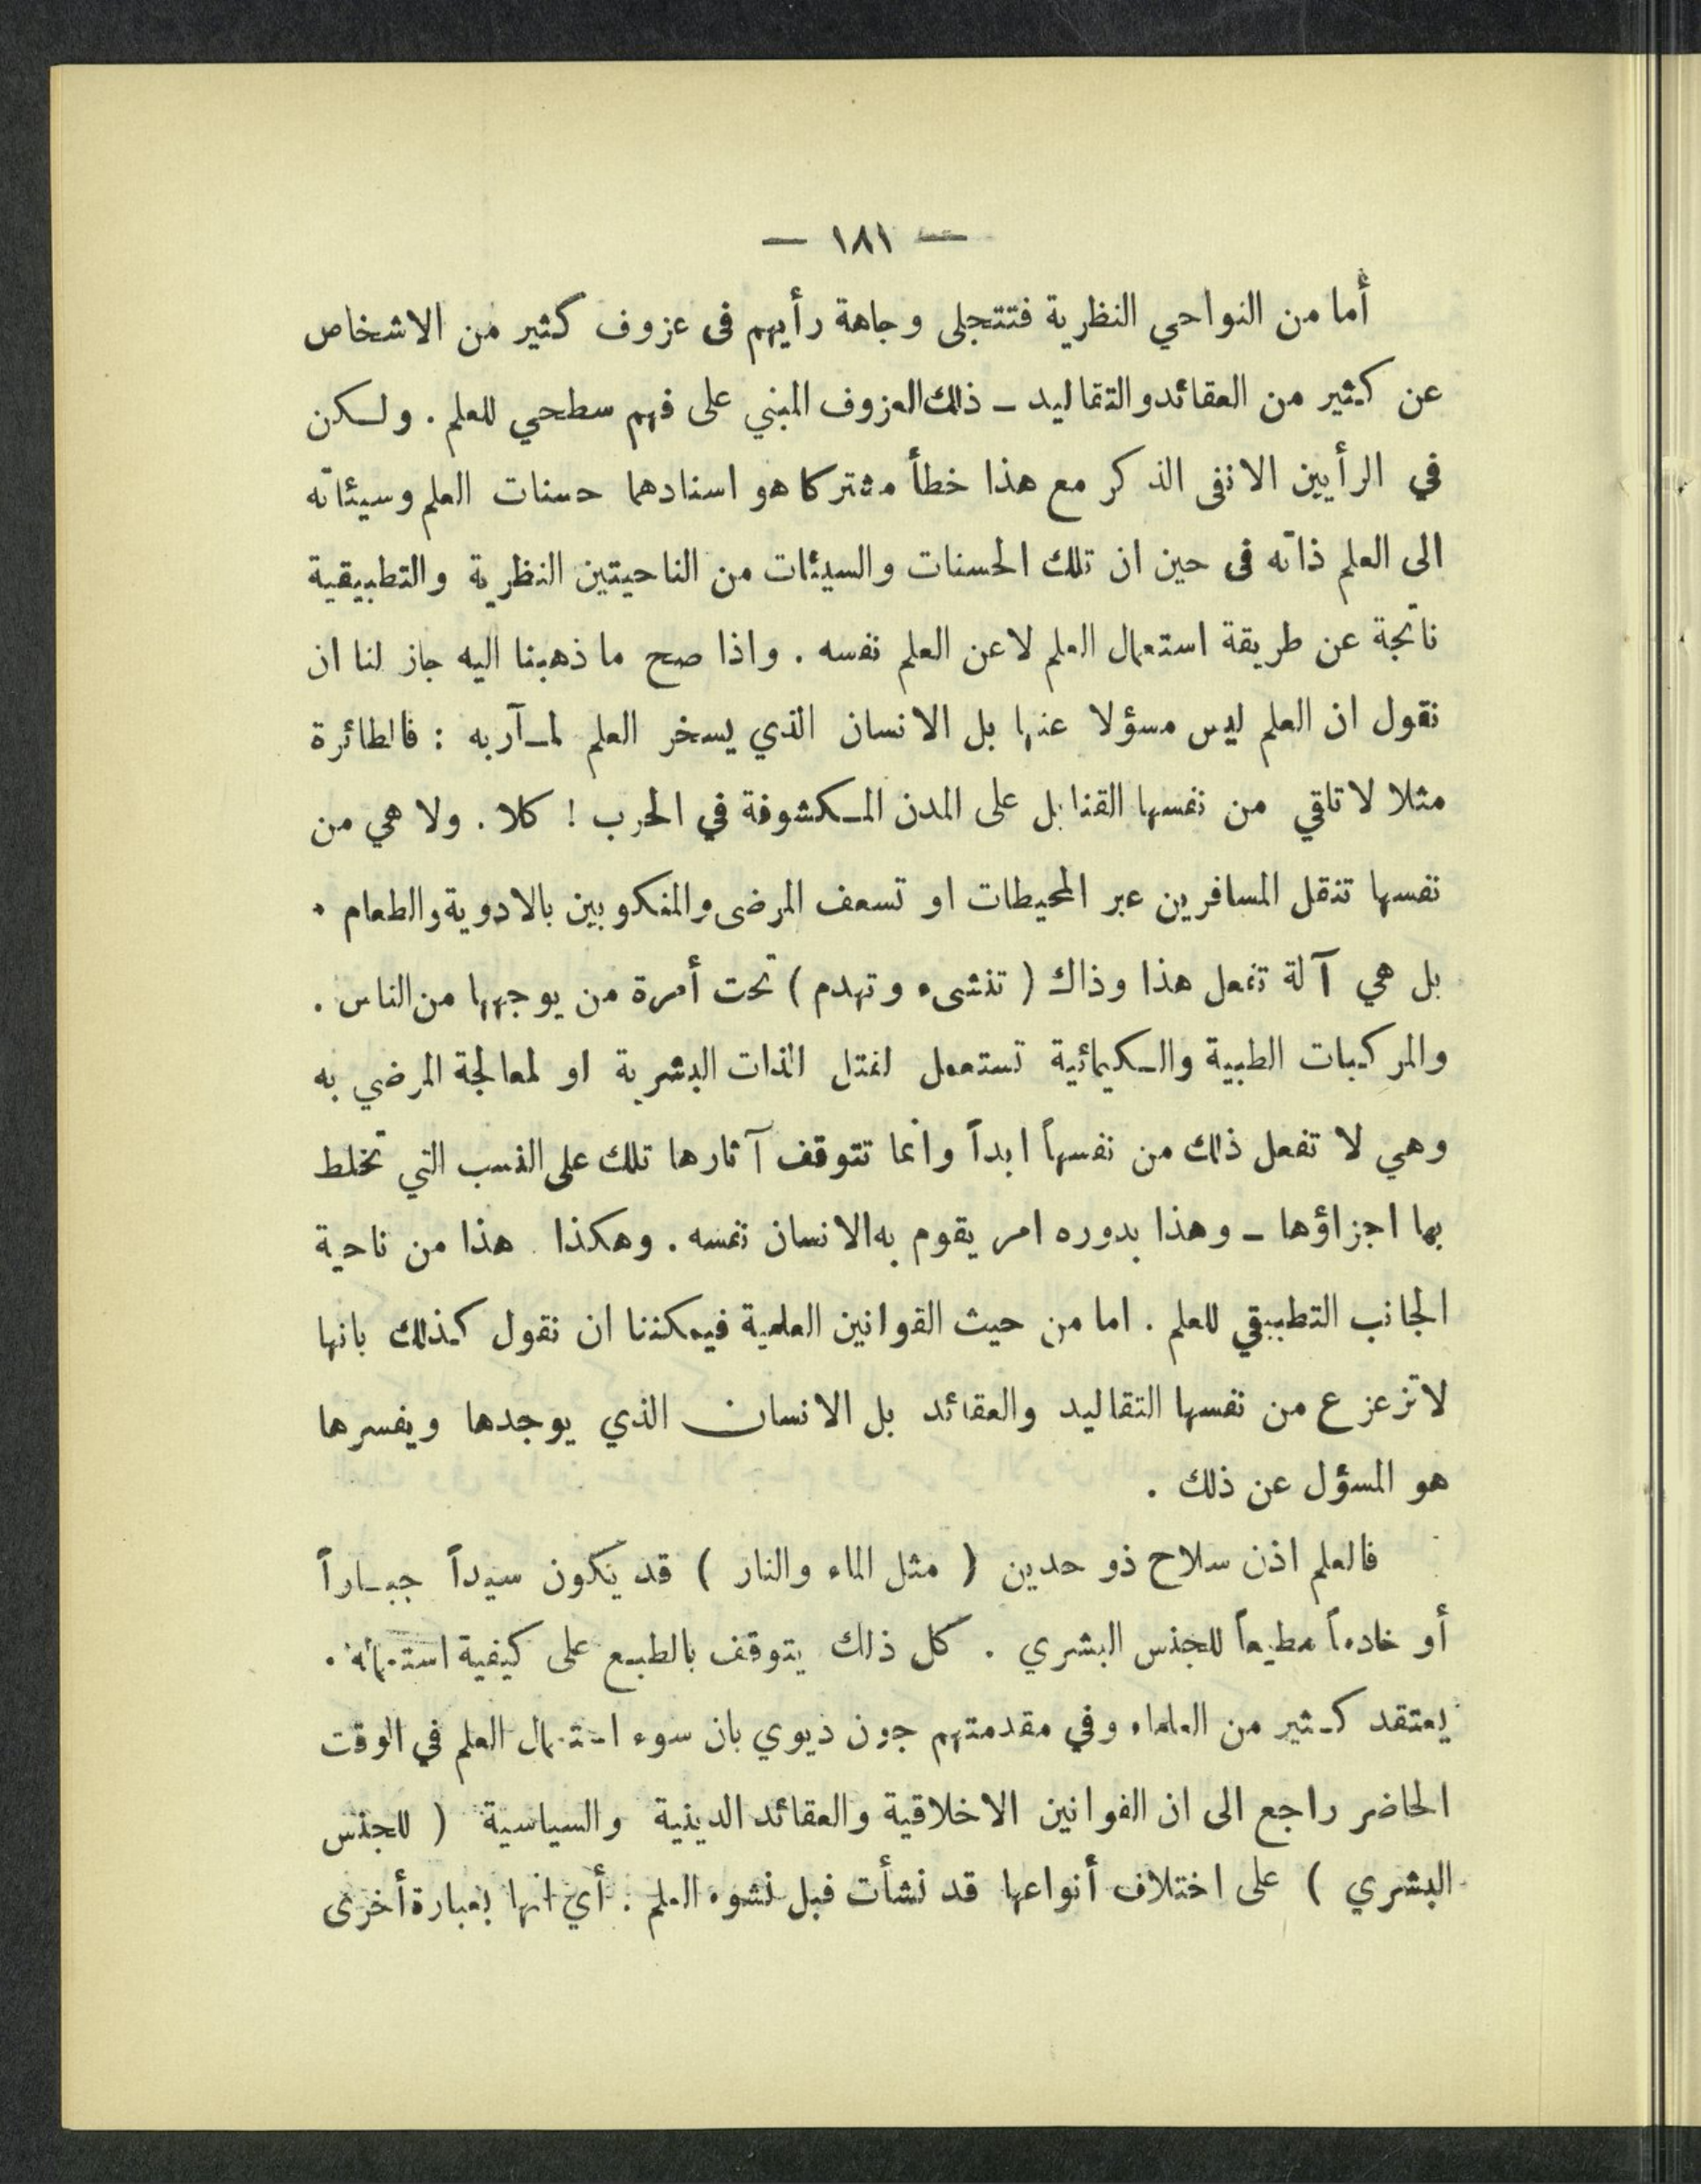 — ١٨١ —
أما من النواحي النظرية فتتجلى وجاهة رأيهم فى عزوف كثير من الاشخاص
عن كثير من العقائد والتقاليد – ذلك العزوف المبني على فهم سطحي للعلم . ولكن
في الرأيين الانفى الذكر مع هذا خطأ مشتركا هو اسنادهما حسنات العلم وسيئاته
الى العلم ذاته فى حين ان تلك الحسنات والسيئات من الناحيتين النظرية والتطبيقية
ناتجة عن طريقة استعمال العلم لاعن العلم نفسه . واذا صح ما ذهبنا اليه جاز لنا ان
نقول ان العلم ليس مسؤلا عنها بل الانسان الذي يسخر العلم لمآربه : فالطائرة
مثلا لا تلقي من نفسها القنابل على المدن المكشوفة في الحرب ! كلا . ولا هي من
نفسها تنقل المسافرين عبر المحيطات او تسعف المرضى والمنكوبين بالادوية والطعام .
بل هي آلة تفعل هذا وذاك ( تنشىء وتهدم ) تحت أمرة من يوجهها من الناس .
والمركبات الطبية والكيمائية تستعمل لقتل الذات البشرية او لمعالجة المرضي به
وهي لا تفعل ذلك من نفسهاً ابداً وانما تتوقف آثارها تلك على النسب التي تخلط
بها اجزاؤها – وهذا بدوره امر يقوم به الانسان نفسه . وهكذا هذا من ناحية
الجانب التطبيقي للعلم . اما من حيث القوانين العلمية فيمكننا ان نقول كذلك بانها
لا تزعزع من نفسها التقاليد والعقائد بل الانسان الذي يوجدها ويفسرها
هو المسؤل عن ذلك .
فالعلم اذن سلاح ذو حدين ( مثل الماء والنار ) قد يكون سيداً جباراً
أو خادماً مطيعاً للجنس البشري . كل ذلك يتوقف بالطبع على كيفية استعماله .
يعتقد كثير من العلماء وفي مقدمتهم جون ديوي بان سوء استعمال العلم في الوقت
الحاضر راجع الى ان القوانين الاخلاقية والعقائد الدينية والسياسية ( للجنس
البشري ) على اختلاف أنواعها قد نشأت قبل نشوء العلم : أي انها بعبارة أخرى